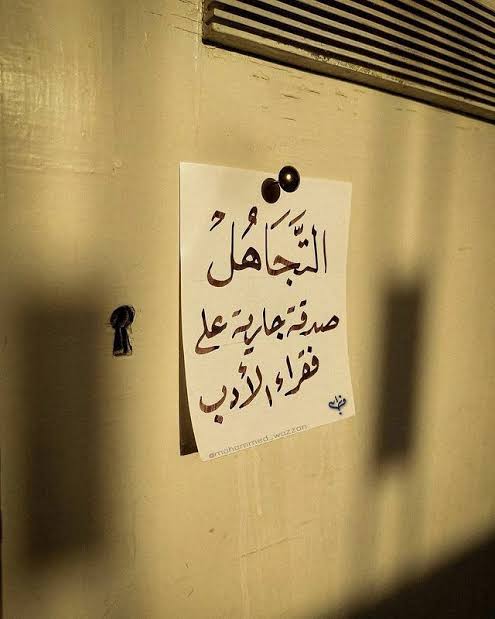 التَّجَاهُلْ
صدقة جارية على
فقراء الأدب
@mohammed_wazzan